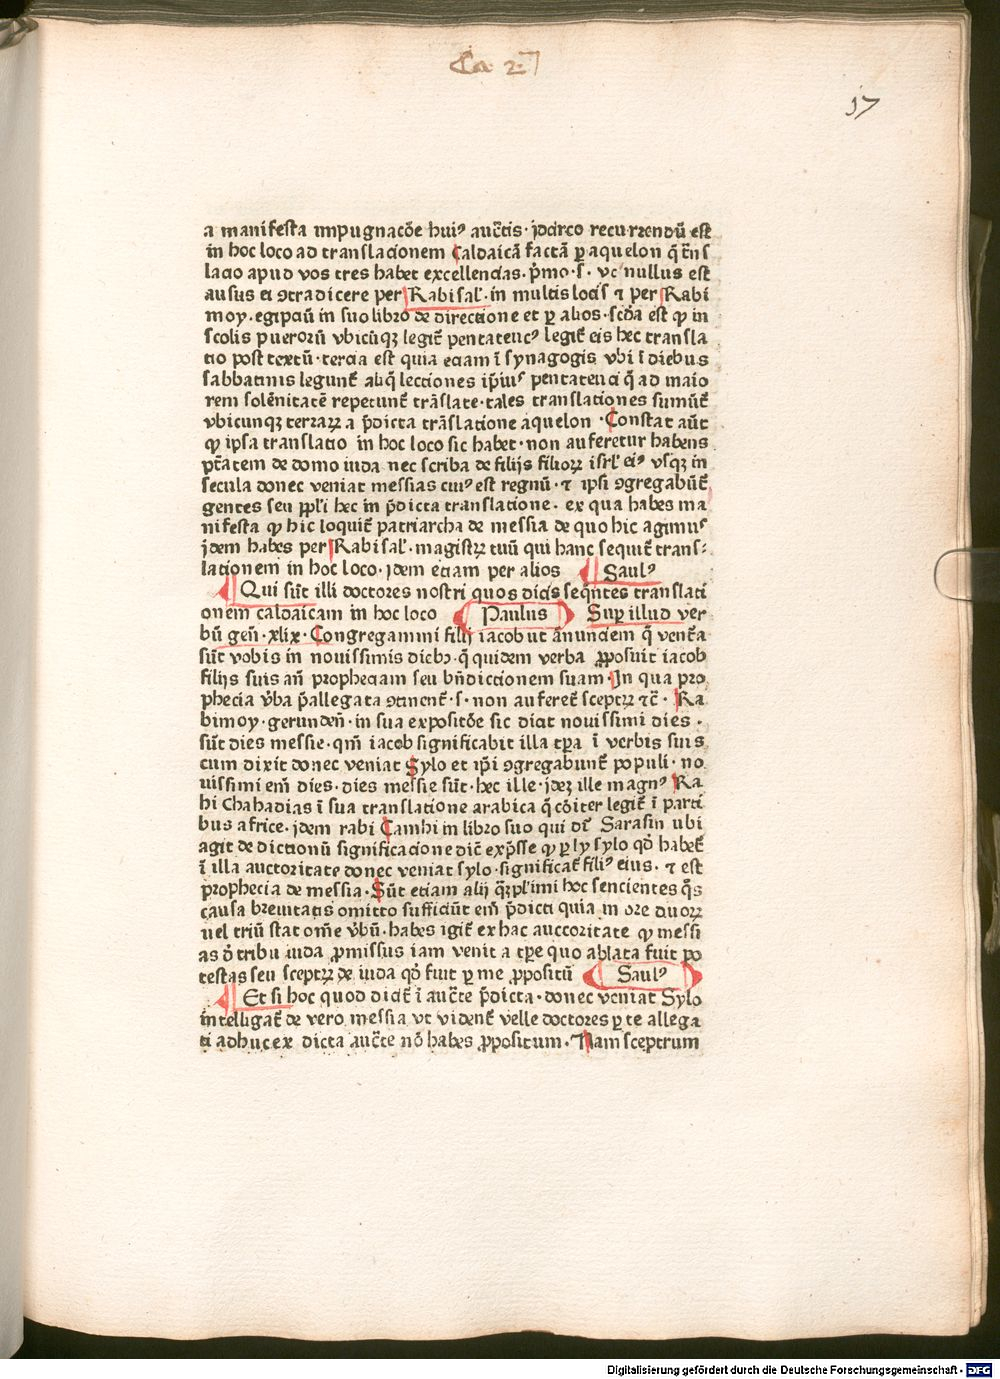 Ca 2
17
a manifesta impugnacōe huiꝰ auctͥis· jdcirco recurrendū est
in hoc loco ad translacionem Caldaicā factā ꝑ aquelon q̄ trͣns
lacio apud vos tres habet excellencias· pͥmo·s· vt nullus est
ausus ei ꝯtradicere per Rabi sal̕· in multis locis ⁊ per Rabi
moy· egipciū in suo libro de directione et ꝑ alios· scd̄a est ꝙ in
scolis puerorū vbicūqꝫ legit̄ pentateucꝰ legit̄ eis hec transla
tio post textū· tercia est quia eciam ī synagogis vbi ī diebus
sabbatinis legunt̄ aliq̄ lectiones ip̄iuˢ pentateuci q̄ ad maio
rem solēnitatē repetunt̄ trāslate· tales translationes sumūt̄
vbicunqꝫ terraꝝ a p̄dicta trāslatione aquelon · Constat aūt
ꝙ ipsa translatio in hoc loco sic habet· non auferetur habens
ptāatem de domo iuda nec scriba de filijs filioꝝ isrl̕ eiꝰ vsqꝫ in
secula donec veniat messias cuiꝰ est regnū· ⁊ ipsi ꝯgregabūt̄
gentes seu ppl̕i hec in p̄dicta translatione· ex qua habes ma
nifesta ꝙ hic loquit̄ patriarcha de messia de quo hic agimuˢ
jdem habes per Rabi sal̕· magistꝝ tuū qui hanc sequit̄ trans⸗
lationem in hoc loco· jdem eciam per alios Saulꝰ
Qui sūt illi doctores nostri quos dicis seq̄ntes translati
onem caldaicam in hoc loco Paulus Suꝑ illud ver
bū gen̄· xlix· Congregamini filij iacob ut ānunciem q̄ vent̄a
sūt vobis in nouissimis diebꝫ· q̄ quidem verba ꝓposuit iacob
filijs suis an̄ propheciam seu bn̄dictionem suam· In qua pro
phecia v̓ba p̄allegata ꝯtinent̄· s· non auferet̄ sceptꝝ ⁊c̄· Ra
bi moy· gerunden̄· in sua expositōe sic dicit nouissimi dies ·
sūt dies messie· qm̄ iacob significabit illa tꝑa ī verbis suis
cum dixit donec veniat Sylo et ip̄i ꝯgregabunt̄ populi· no
uissimi em̄ dies· dies messie sūt· hec ille· jdeꝫ ille magnꝰ Ra
bi Chahadias ī sua translatione arabica q̄ cōiter legit̄ ī parti
bus africe· jdem rabi Camhi in libro suo qui dr̄ Sarasin ubi
agit de dictionū significacione dic̄ exp̄sse ꝙ ꝑ ly sylo qd̓ habet̄
ī illa auctoritate donec veniat sylo· significat̄ filiꝰ eius· ⁊ est
prophecia de messia· Sūt eciam alij q̄ꝫpl̕imi hoc sencientes q̄s
causa breuitatis omitto sufficiūt em̄ p̄dicti quia in ore duoꝝ
uel triū stat om̄e v̓bū· habes igit̄ ex hac auctoritate ꝙ messi
as d̓ tribu iuda ꝓmissus iam venit a tꝑe quo ablata fuit po
testas seu sceptꝝ de iuda qd̓ fuit ꝑ me ꝓpositū Saulꝰ
Et si hoc quod dicit̄ ī auctͥte p̄dicta· donec veniat Sylo
intelligat̄ de vero messia vt vident̄ velle doctores ꝑ te allega
ti adhuc ex dicta auctͥte nō habes ꝓpositum· Nam sceptrum
Digitalisierung gefördert durch die Deutsche Forschungsgemeinschaft - DFG